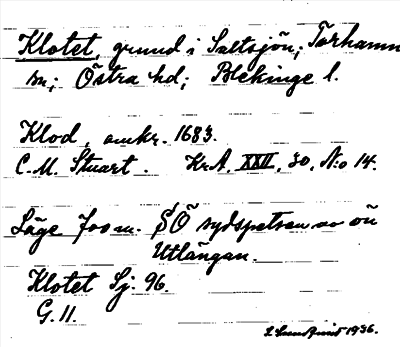 Klotet, grund i Saltsjön; Torhamn
sn; Östra hd; Blekinge l.
Klod, omkr. 1683.
C. M. Stuart. Kr.A. XXII, 30, N:o 14.
Läge 700 m. SÖ sydspetsen av ön
Utlängan.
Klotet Sj. 96.
G. 11.
1936.